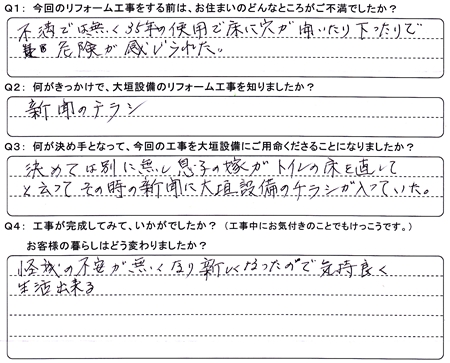 Q1: 今回のリフォーム工事をする前は、お住まいのどんなところがご不満でしたか?
不満では無く35年の使用で床に穴が開いたり下ったりで
危険が感じられた。
Q2: 何がきっかけで、大垣設備のリフォーム工事を知りましたか?
新聞のチラシ
Q3: 何が決め手となって、今回の工事を大垣設備にご用命くださることになりましたか?
決めては別に無し息子の嫁がトイレの床を直して
と云ってその時の新聞に大垣設備のチラシが入っていた。
Q4: 工事が完成してみて、いかがでしたか? (工事中にお気付きのことでもけっこうです。)
お客様の暮らしはどう変わりましたか?
怪我の不安が無くなり新しくなったので気持良く
生活出来る